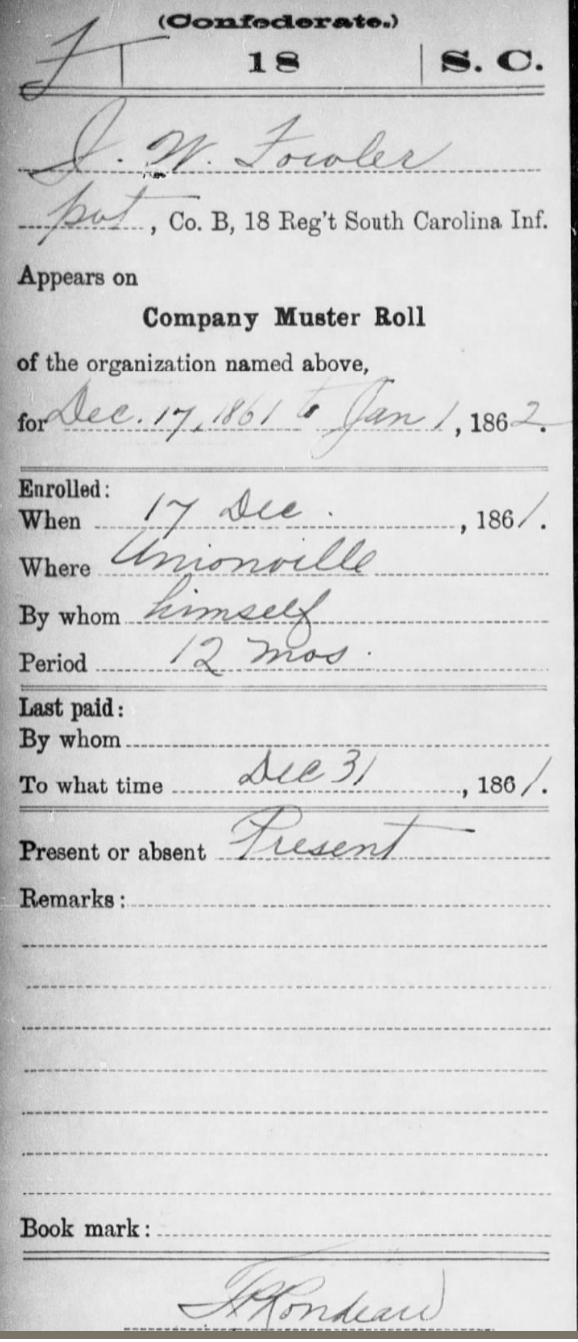 (Confederate.)
F 18 S. C.
J. W. Fowler
pvt, Co. B, 18 Reg't South Carolina Inf.
Appears on
Company Muster Roll
of the organization named above,
for Dec. 17, 1861 to Jan 1, 1862.
Enrolled:
When 17 Dec., 1861.
Where Unionville
By whom himself
Period 12 mos.
Last paid:
By whom
To what time Dec 31, 1861.
Present or absent Present
Remarks:
Book mark: